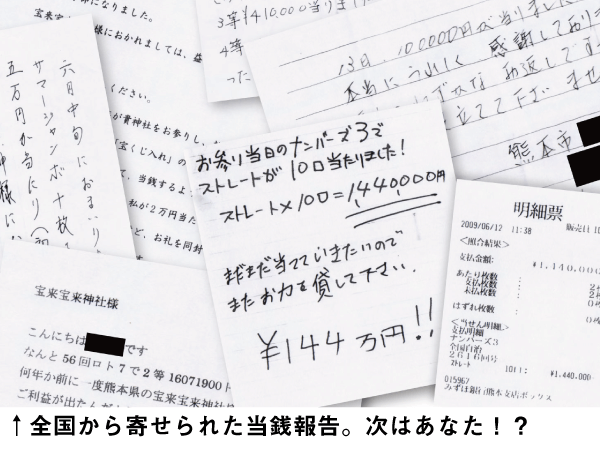 部になりました。
宝来宝
様におかれましては、益
ください。
が貴神社をお参りし、
「宝くじ入れ」の
て、当銭するよ
私が2万円当た
ど、お礼を同封
3等¥410,000当りま
4等
った
13日、100000円が当りました
本当にうれしく 感謝しており
お返しです
立てて下さい ませ
熊本市
六月中旬におまいり
サマージャンボ十枚
五万円が当たり
お参り当日のナンバーズ3で
ストレートが10口当たりました!
ストレート×10口=1440,000円
まだまだ当てていきたいので
またお力を貸して下さい.
¥144万円!!
明細票
2009/06/12 11:38 販売員
<照合結果>
支払金額: ¥1,140,000
あたり枚数 : 2
支払枚数 : 2
未払枚数 : 0枚
はずれ枚数 : 0枚
<当せん明細>
支払明細
ナンバーズ3
全国自治
第2616回号
ストレート 10口: ¥1,440,000-
015967
みずほ銀行熊本支店ボックス
宝来宝来神社様
こんにちは です
なんと56回ロト7で2等16071900
何年か前に一度熊本県の宝来宝来神社
ご利益が出たんだ
↑全国から寄せられた当銭報告。次はあなた！？